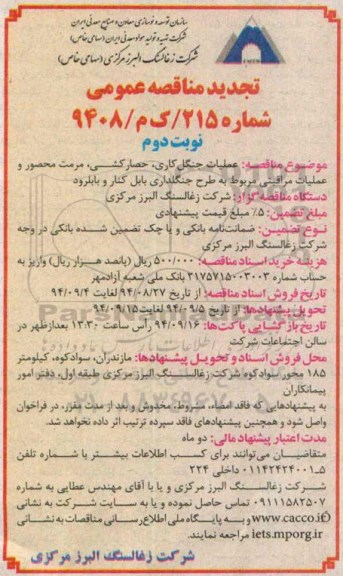 سازمان توسعه و نوسازی معادن و صنایع معدنی ایران
شرکت تهیه و تولید مواد معدنی ایران (سهامی خاص)
شرکت زغالسنگ البرز مرکزی (سهامی خاص)
تجدید مناقصه عمومی
شماره ۲۱۵/ک م/۹۴۰۸
نوبت دوم
موضوع مناقصه: عملیات جنگل کاری، حصارکشی، مرمت محصور و
عملیات مراقبتی مربوط به طرح جنگلداری بابل کنار و بابلرود
دستگاه مناقصه گزار: شرکت زغالسنگ البرز مرکزی
مبلغ تضمین: ۵٪ مبلغ قیمت پیشنهادی
نوع تضمین: ضمانت‌نامه بانکی و یا چک تضمین شده بانکی در وجه
شرکت زغالسنگ البرز مرکزی
هزینه خرید اسناد مناقصه: ۵۰۰/۰۰۰ ریال (پانصد هزار ریال) واریز به
حساب شماره ۳۱۷۵۷۱۵۰۰۳۰۰۳ بانک ملی شعبه آزادمهر
تاریخ فروش اسناد مناقصه: از تاریخ ۹۴/۰۸/۲۷ لغایت ۹۴/۰۹/۴
تحویل پیشنهادها: از تاریخ ۹۴/۰۹/۵ لغایت ۹۴/۰۹/۱۵
تاریخ بازگشایی پاکت‌ها: ۹۴/۰۹/۱۶ رأس ساعت ۱۳:۳۰ بعدازظهر در
سالن اجتماعات شرکت
محل فروش اسناد و تحویل پیشنهادها: مازندران، سوادکوه، کیلومتر
۱۸۵ محور سوادکوه شرکت زغالسنگ البرز مرکزی طبقه اول، دفتر امور
پیمانکاران
به پیشنهادهایی که فاقد امضاء، مشروط، مخدوش و بعد از مدت مقرر، در فراخوان
واصل شود و همچنین پیشنهادهای فاقد سپرده ترتیب اثر داده نخواهد شد.
مدت اعتبار پیشنهاد مالی: دو ماه
متقاضیان می‌توانند برای کسب اطلاعات بیشتر با شماره تلفن
۵-۰۱۱۴۲۴۲۴۰۰۱ داخلی ۲۲۴
شرکت زغالسنگ البرز مرکزی و یا با آقای مهندس عطایی به شماره
۰۹۱۱۱۵۸۲۵۰۷ تماس حاصل نموده و یا به سایت شرکت به نشانی
www.cacco.ir و به پایگاه ملی اطلاع‌رسانی مناقصات به نشانی
iets.mporg.ir مراجعه نمایند.
شرکت زغالسنگ البرز مرکزی